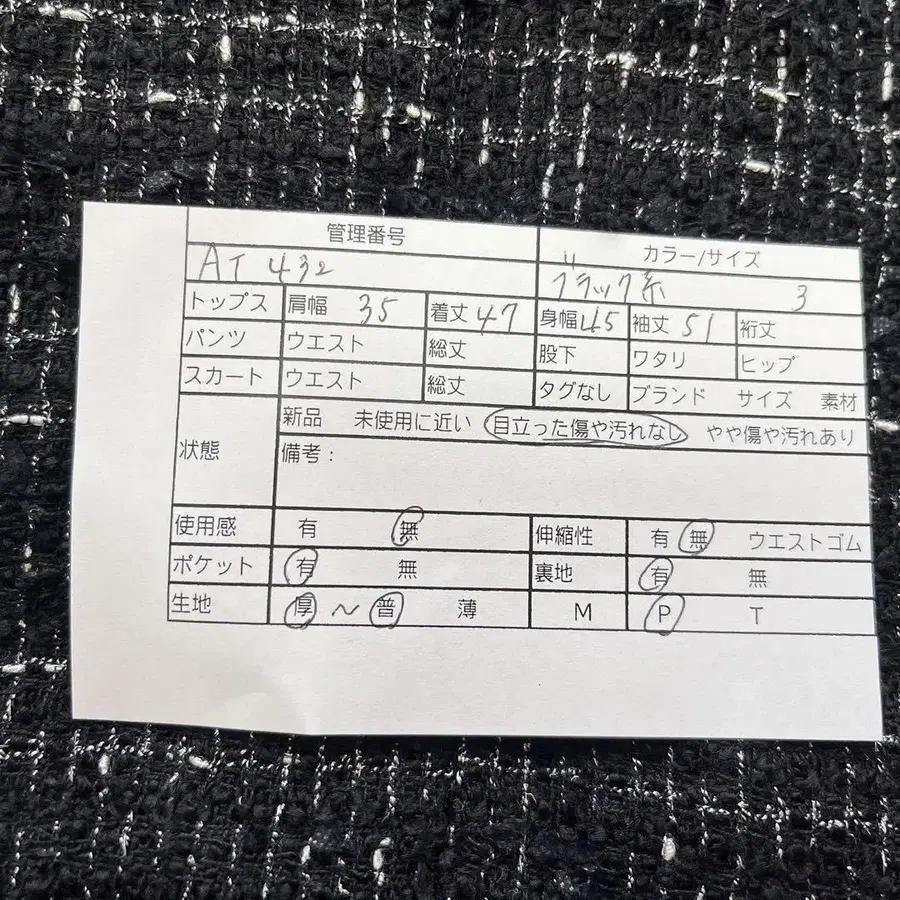 管理番号 カラー/サイズ
AT 432 ブラック系 3
トップス 肩幅 35 着丈 47 身幅 45 袖丈 51 裄丈
パンツ ウエスト 総丈 股下 ワタリ ヒップ
スカート ウエスト 総丈 タグなし ブランド サイズ 素材
状態 新品 未使用に近い 目立った傷や汚れなし やや傷や汚れあり
備考：
使用感 有 無 伸縮性 有 無 ウエストゴム
ポケット 有 無 裏地 有 無
生地 厚 ～ 普 薄 M P T